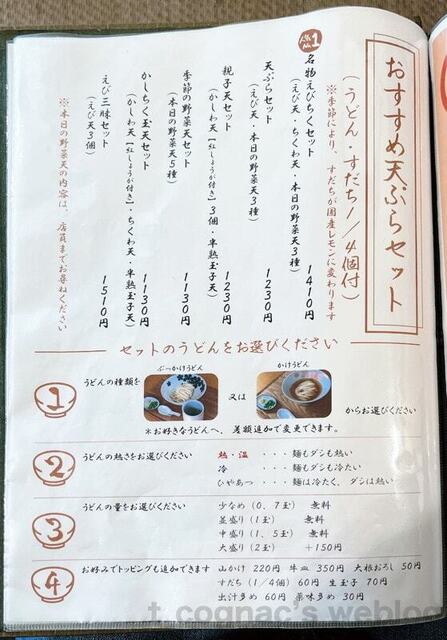 おすすめ天ぷらセット
(うどん・すだち1/4個付)
※季節により、すだちが国産レモンに変わります
人気No.1
名物えびちくセット 1410円
(えび天・ちくわ天・本日の野菜天3種)
天ぷらセット 1230円
(えび天・本日の野菜天3種)
親子天セット 1230円
(かしわ天【紅しょうが付き】3個・半熟玉子天)
季節の野菜天セット 1130円
(本日の野菜天5種)
かしちく玉天セット 1130円
(かしわ天【紅しょうが付き】・ちくわ天・半熟玉子天)
えび三昧セット 1510円
(えび天3個)
※本日の野菜天の内容は、店員までお尋ねください
セットのうどんをお選びください
1 うどんの種類を
ぶっかけうどん
又は
かけうどん
からお選びください
＊お好きなうどんへ、差額追加で変更できます。
2 うどんの熱さをお選びください
熱・温 ・・・麺もダシも熱い
冷 ・・・麺もダシも冷たい
ひやあつ ・・・麺は冷たく、ダシは熱い
3 うどんの量をお選びください
少なめ(0、7玉) 無料
並盛り(1玉) 無料
中盛り(1、5玉) 無料
大盛り(2玉) +150円
4 お好みでトッピングも追加できます
山かけ 220円 牛皿 350円 大根おろし 50円
すだち(1/4個) 60円 生玉子 70円
出汁多め 60円 薬味多め 30円
t_cognac's weblog